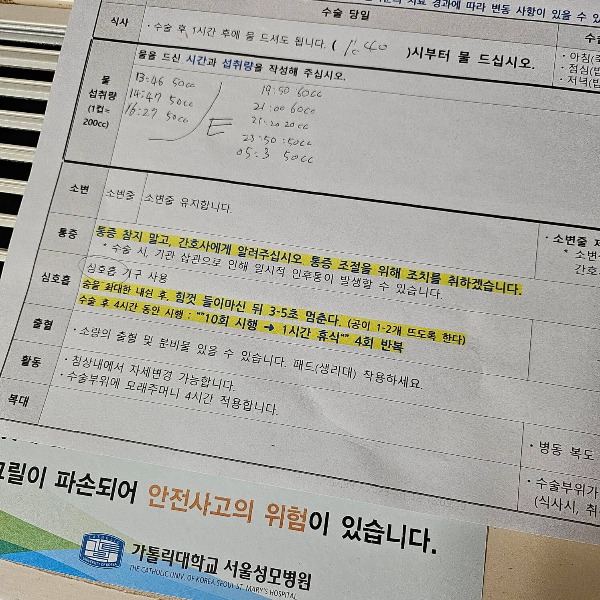 수술 당일
식사
· 수술 후 1시간 후에 물 드셔도 됩니다. ( )시부터 물 드십시오.
· 아침(
· 점심(밥
· 저녁(밥
물
섭취량
(1컵=
200cc)
물을 드신 시간과 섭취량을 작성해 주십시오.
13:46 50cc
14:47 50cc
16:27 50cc
E
19:50 60cc
21:00 60cc
20cc
23:50 :50cc
05:3 50cc
소변
소변줄
소변줄 유지합니다.
· 소변줄 제
* 소변
간호
통증
통증 참지 말고, 간호사에게 알려주십시오. 통증 조절을 위해 조치를 취하겠습니다.
* 수술 시, 기관 삽관으로 인해 일시적 인후통이 발생할 수 있습니다.
심호흡
심호흡 기구 사용
숨을 최대한 내쉰 후, 힘껏 들이마신 뒤 3-5초 멈춘다. (공이 1-2개 뜨도록 한다)
수술 후 4시간 동안 시행 : ""10회 시행 → 1시간 휴식"" 4회 반복
출혈
· 소량의 출혈 및 분비물 있을 수 있습니다. 패드(생리대) 착용하세요.
활동
· 침상내에서 자세변경 가능합니다.
· 병동 복도
복대
· 수술부위에 모래주머니 4시간 적용합니다.
· 수술부위가
(식사시, 취
그릴이 파손되어 안전사고의 위험이 있습니다.
가톨릭대학교 서울성모병원
THE CATHOLIC UNIV. OF KOREA SEOUL ST. MARY'S HOSPITAL